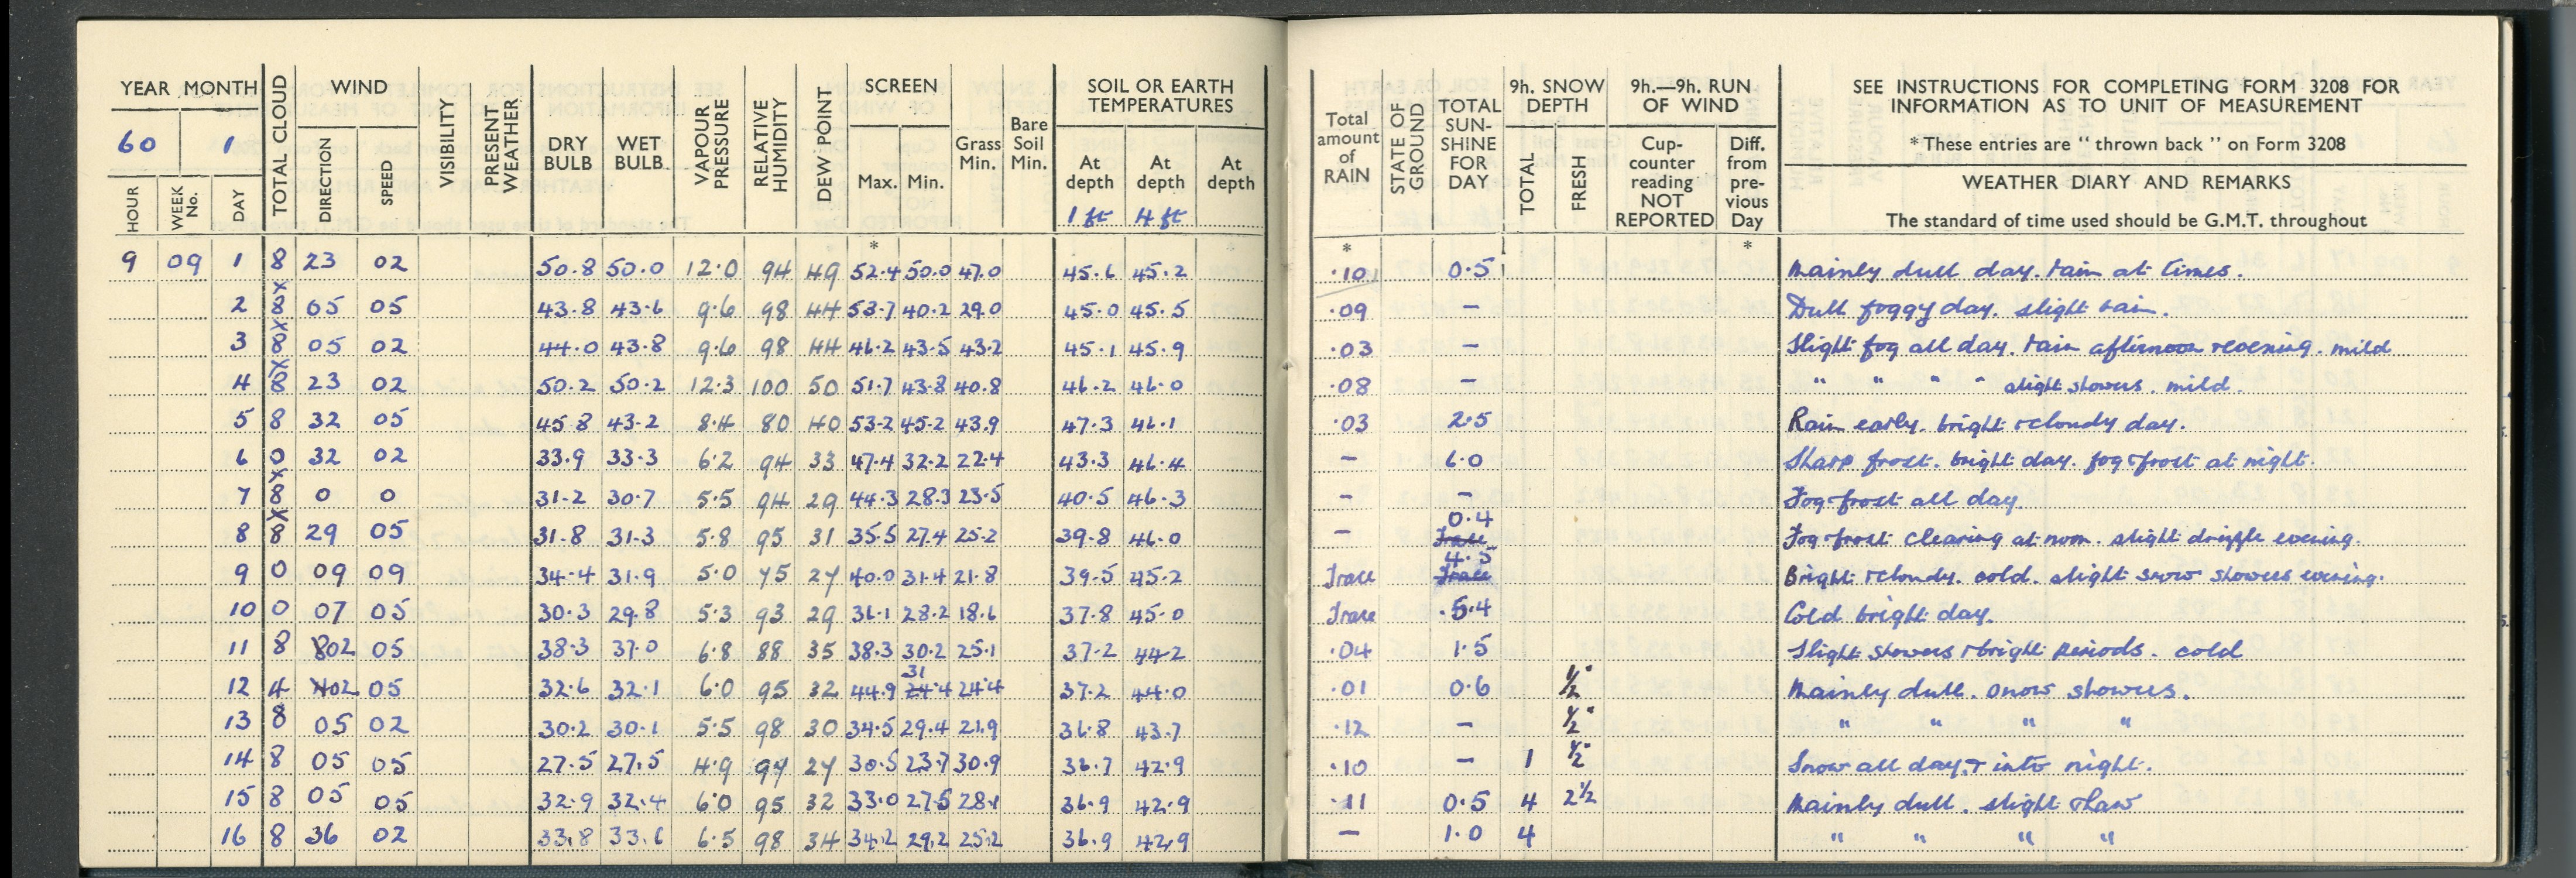 YEAR MONTH TOTAL CLOUD WIND VISIBILITY PRESENT WEATHER DRY BULB WET BULB. VAPOUR PRESSURE RELATIVE HUMIDITY DEW POINT SCREEN Grass Min. Bare Soil Min. SOIL OR EARTH TEMPERATURES
60 1 DIRECTION SPEED Max. Min. At depth At depth At depth
HOUR WEEK No. DAY 1 ft 4 ft
Total amount of RAIN STATE OF GROUND TOTAL SUN-SHINE FOR DAY 9h. SNOW DEPTH TOTAL FRESH 9h.—9h. RUN OF WIND Cup-counter reading NOT REPORTED Diff. from pre-vious Day
SEE INSTRUCTIONS FOR COMPLETING FORM 3208 FOR
INFORMATION AS TO UNIT OF MEASUREMENT
* These entries are "thrown back" on Form 3208
WEATHER DIARY AND REMARKS
The standard of time used should be G.M.T. throughout
* * *
9 09 1 8 23 02 50.8 50.0 12.0 94 49 52.4 50.0 47.0 45.6 45.2 .10 0.5 Mainly dull day. rain at times.
2 8 05 05 43.8 43.6 9.6 98 44 53.7 40.2 29.0 45.0 45.5 .09 – Dull foggy day. slight rain.
3 8 05 02 44.0 43.8 9.6 98 44 46.2 43.5 43.2 45.1 45.9 .03 – Slight fog all day. rain afternoon + evening. mild
4 8 23 02 50.2 50.2 12.3 100 50 51.7 43.8 40.8 46.2 46.0 .08 – " " " " slight showers. mild.
5 8 32 05 45.8 43.2 8.4 80 40 53.2 45.2 43.9 47.3 46.1 .03 2.5 Rain early. bright + cloudy day.
6 0 32 02 33.9 33.3 6.2 94 33 47.4 32.2 22.4 43.3 46.4 – 6.0 Sharp frost. bright day. fog + frost at night.
7 8 0 0 31.2 30.7 5.5 94 29 44.3 28.3 23.5 40.5 46.3 – – Fog + frost all day.
8 8 29 05 31.8 31.3 5.8 95 31 35.5 27.4 25.2 39.8 46.0 – 0.4 Trace Fog + frost clearing at noon. slight drizzle evening.
9 0 09 09 34.4 31.9 5.0 75 27 40.0 31.4 21.8 39.5 45.2 Trace 4.5 Trace Bright + cloudy. cold. slight snow showers evening.
10 0 07 05 30.3 29.8 5.3 93 29 36.1 28.2 18.6 37.8 45.0 Trace 5.4 Cold bright day.
11 8 02 05 38.3 37.0 6.8 88 35 38.3 30.2 25.1 37.2 44.2 .04 1.5 Slight showers + bright periods. cold
12 4 02 05 32.6 32.1 6.0 95 32 44.9 31.4 24.4 37.2 44.0 .01 0.6 ½" Mainly dull. snow showers.
13 8 05 02 30.2 30.1 5.5 98 30 34.5 29.4 21.9 36.8 43.7 .12 – ½" " " " "
14 8 05 05 27.5 27.5 4.9 99 27 30.5 23.7 30.9 36.7 42.9 .10 – 1 ½" Snow all day, + into night.
15 8 05 05 32.9 32.4 6.0 95 32 33.0 27.5 28.1 36.9 42.9 .11 0.5 4 2½ Mainly dull. slight thaw
16 8 36 02 33.8 33.6 6.5 98 34 34.2 29.2 25.2 36.9 42.9 – 1.0 4 " " " "